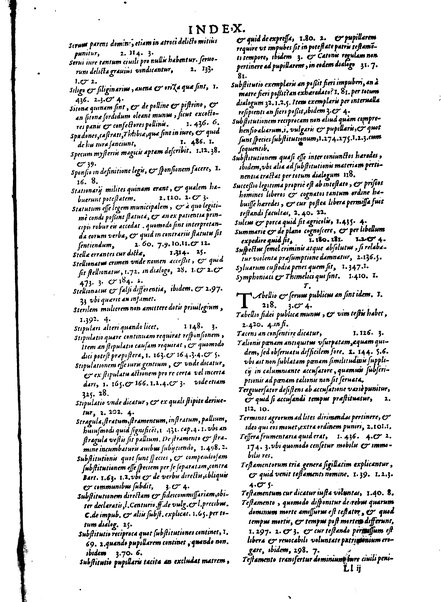 INDEX.
Seruum parens domini, etiam in atroci delicto mitius
punitur. 2. 114. 3.
Serui iure tantum ciuili pro nullis habentur. seruo-
rum delicta grauius vindicantur, 2. 133.
1. & 2.
Siligo & siliginarius, auena & oriza quæ sint, 1.
436. 2. 3. & 4.
Sitona quinam sint, & de polline & pistrino, &
an sitona sordidum oleant munus, sicut exacto-
res panis & confectores pollinii. 1. 436. &
Spadones, castrate, Thlibiæ, quæ sint in iure, & quid
de his iura sanciunt, 1. 486. 1.
Specum mysteriis magicis aptam describit. 1. 12. 38.
& 39.
Sponsio in definitione legis, & sponsionem facere, 1.
16. 8.
Stationarij milites quinam erant, & qualem ha-
buerunt potestatem. 2. 120. 2. & 3.
Statutum esse legem municipalem, & à quo legiti-
mè condi possint statuta, & an ex patientia prin-
cipis robur eis accedat. quomodo sint interpretan-
da eorum verba, & quid in contrariis statutis sit
sentiendum, 2. 60. 7. 9. 10. 11. & 12.
Stella errantes cur dictæ, 1. 314. 25.
Stellionatus crimen vnde nomen acceperit, & quid
sit stellionatus, 1. 72. in dialogo, 25. 1. & 2. &
473. 3. & 184. 2.
Stellionatus & falsi differentia, ibidem & 2. 97.
33. vbi quare an infamet.
Sterilem mulierem non amittere dotis priuilegium,
1. 392. 4.
Stipulari alteri quando licet, 1 148. 3.
Stipulatio quare continuam requirat responsionem,
Item an stipulatio causam requirat, & quomodo
dici potest præpostera, 1. 163. & 164. 3. 4. & 5.
Stipulationem esse iuris gentium, & vnde dicatur,
& ex stipulatu actionem pro re certa vel incerta
dari. 1. 165. & 166. 1. 2. 4. & 3. vnde etiam
325. 28.
Stipulatio vnde dicatur, & ex quali stipite deriue-
tur, 2. 202. 4.
Stragula, stratum, stramentum, instratum, pallium,
huiusmodi quid significet, 1. 431. cap. 4. 1. vbi an
stragula vestis sit pallium. De stramento & stra-
mine incumbentium auribus subijciendo, 1. 498. 2.
Substitutionis quot sunt species, & compendiosam
substitutionem esse speciem per se separatam, contra
Bart. 1. 63. 1. 2. vbi & de verbis directis, obliquis
& communibus subdit, 3. & 4.
Substitutionem directam & fideicommissariam, obi-
ter declaratis, l. Centurio. ff. de vulg. & l. precibus.
C. de impub. & aliis subst. explicat. 1. 65. per to-
tum dialog. 25.
Substitutio reciproca quot substitutiones continet, 1.
69. 2. quando pupillarem continet, quando non,
ibidem 3. 70. 6.
Substitutio pupillaris tacita an excludat matrem,
& quid de expressa, 1. 80. 2. & pupillarem
require vt impubes sit in potestate patris testamē-
ti tempore, ibidem 3. & Catonis regulam non
pertinere ad pupillarem, in eodem dialogo 31. 7.
81.
Substitutio exemplaris an possit fieri impuberi, an à
matre fieri possit? an exhæredato? 1. 81. per totum
dialogum 32. 1. 2. 5. Item exemplaris per interualla
resipientis an fieri possit, ibidem 3. & 4.
Substitutionem reciprocam non aliud quàm compre-
hensis aliarum, s. vulgaris & pupillaris, & quot
sunt species substitutionum, 1. 274. 275. 1. 2. 3. cum
sequentib.
Substitutionem quasi esse inter coniunctos hæredes,
ibidem, vbi alia ad substitutionis materiam perti-
nentia tractat per totum dialogum 118.
Successio legitima proprie est ab intestato, & prisco
homines liberos & cognatos tantum ordine ha-
buisse hæredes, & cur postea libera permissa fuit
testandi facultas, 2. 40. 22.
Sulcus & porca quid sit agricolis, 1. 455. 4.
Summarie & de plano cognoscere, & per libellum
expedire quid sit, 1. 180. 181. 1. 2. & 4.
Suspectus semel criminis atque absolutus, si relaba-
tur violenta præsumptione damnatur, 2. 136. 5.
Syluarum custodia penes quem sit, 1. 347. 1.
Symphoniaci & Thimelici qui sint. 1. 410. 1.
T.
TAbellio & seruus publicus an sint idem, 1.
218. 3. & 4.
Tabellio fidei publica munus, & vim testis habet,
2. 420. 4. in fi.
Tacens an consentire dicatur, 1. 126. 3.
Talionis pœnam antiquitus vsurpatam, æquam qui-
dem, sed obseruatu difficilem fore. 2. 144. 5. 6.
vbi ait non sublatam pœnam similitudinis suppli-
cij in calumniante accusatore, quamuis subscri-
ptionis ad pœnam talionis non sit seruata,
Tergiuersator desistens ab accusatione variè punitur,
& quod si accusandi tempus præstituatur, 2.
112. 10.
Terminos agrorum ad lites dirimendas pertinere, &
ideo qui eos mouet, extra ordinem puniri, 2. 101. 1.
Tessera frumentaria quid erat, 1. 436. 4. & 2.
174. 3. vbi quomodo censitur mobile & immo-
bile res.
Testamentorum tria genera sigillatim explicantur,
& quid venit testamenti nomine. 1. 39. 1. 2. 3.
4. & 5.
Testamentum cur dicatur iusta voluntas, 1. 40. 8.
Testamento, quomodo disponitur de rebus quarum
dominium morte amissurus est testator, & quod
tempus mortis, & tempus post mortem differunt,
1. 297. 2. & 3. & cur testandi permissum est
libera & reuocabilis voluntate patrimonium ero-
gare, ibidem, 298. 7.
Testamento transfertur dominium iure ciuili peni-
Ll ij